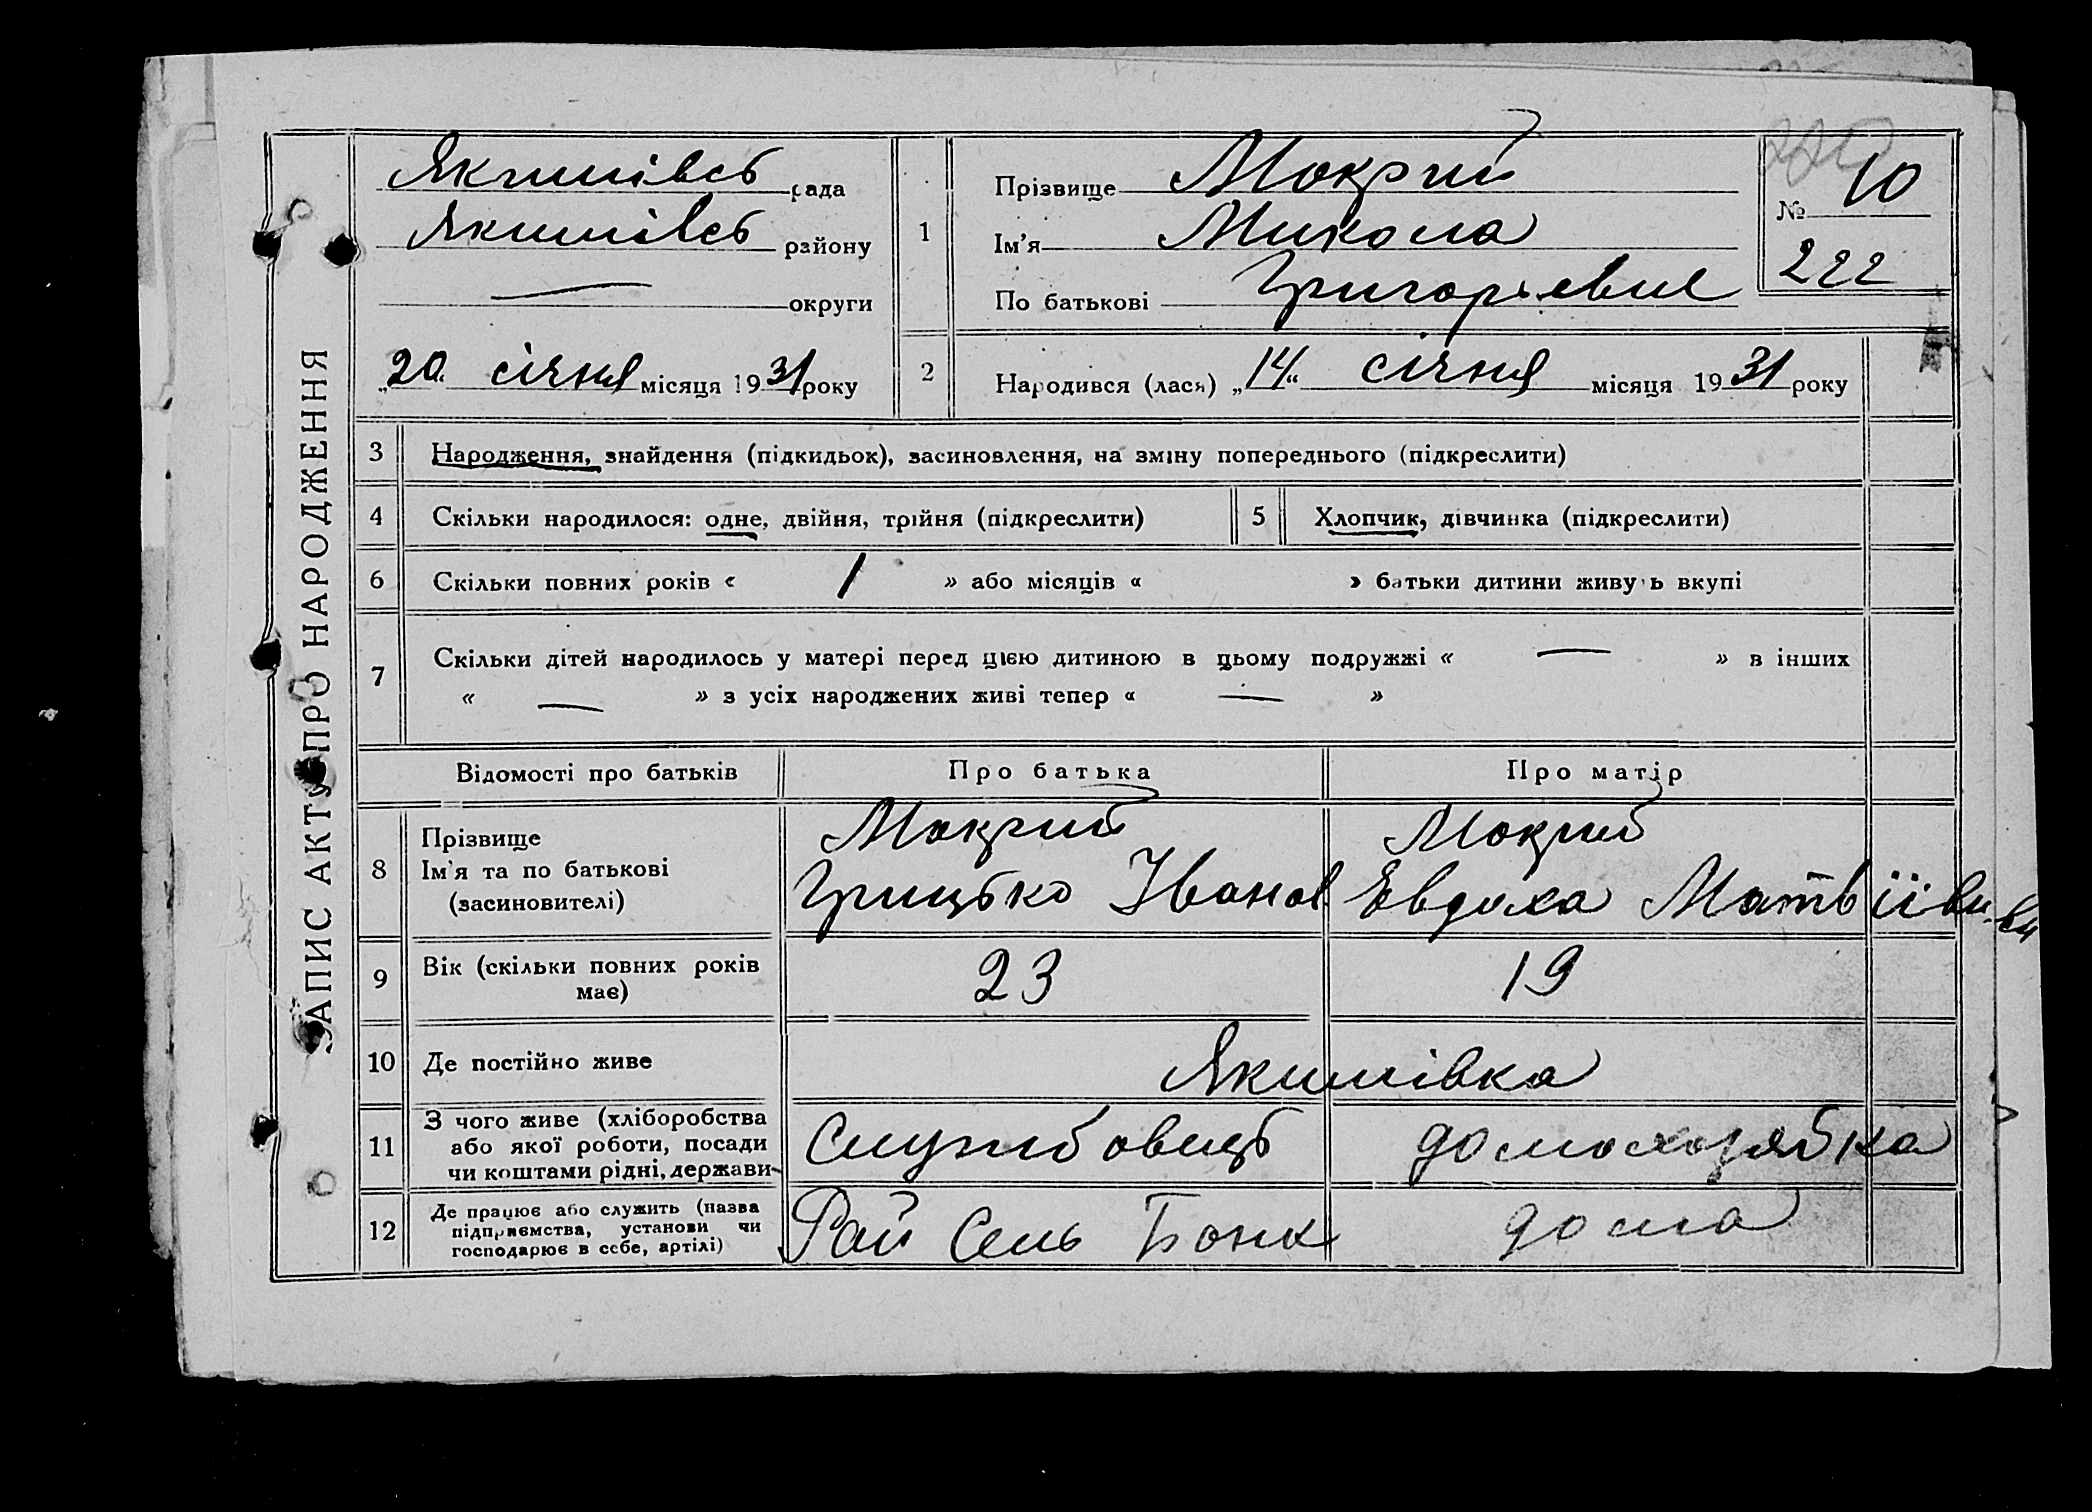 ЗАПИС АКТУ ПРО НАРОДЖЕННЯ
Якимівсь рада
Якимівсь району
округи
„20“ січня місяця 1931 року
1
Прізвище Мокрий
Ім’я Микола
По батькові Григорьевич
№ 10
222
2
Народився (лася) „14“ січня місяця 1931 року
3 Народження, знайдення (підкидьок), засиновлення, на зміну попереднього (підкреслити)
4 Скільки народилося: одне, двійня, трійня (підкреслити) 5 Хлопчик, дівчинка (підкреслити)
6 Скільки повних років « 1 » або місяців « » батьки дитини живуть вкупі
7 Скільки дітей народилось у матері перед цією дитиною в цьому подружжі « — » в інших
« — » з усіх народжених живі тепер « — »
Відомості про батьків Про батька Про матір
8 Прізвище Мокрий Мокрий
Ім’я та по батькові Грицько Іванов Евдоха Матвіївн
(засиновителі)
9 Вік (скільки повних років має) 23 19
10 Де постійно живе Якимівка
11 З чого живе (хліборобства
або якої роботи, посади
чи коштами рідні, держави
Службовець домохозяйка
12 Де працює або служить (назва
підприємства, установи чи
господарює в себе, артілі)
Рай Сель Банк дома